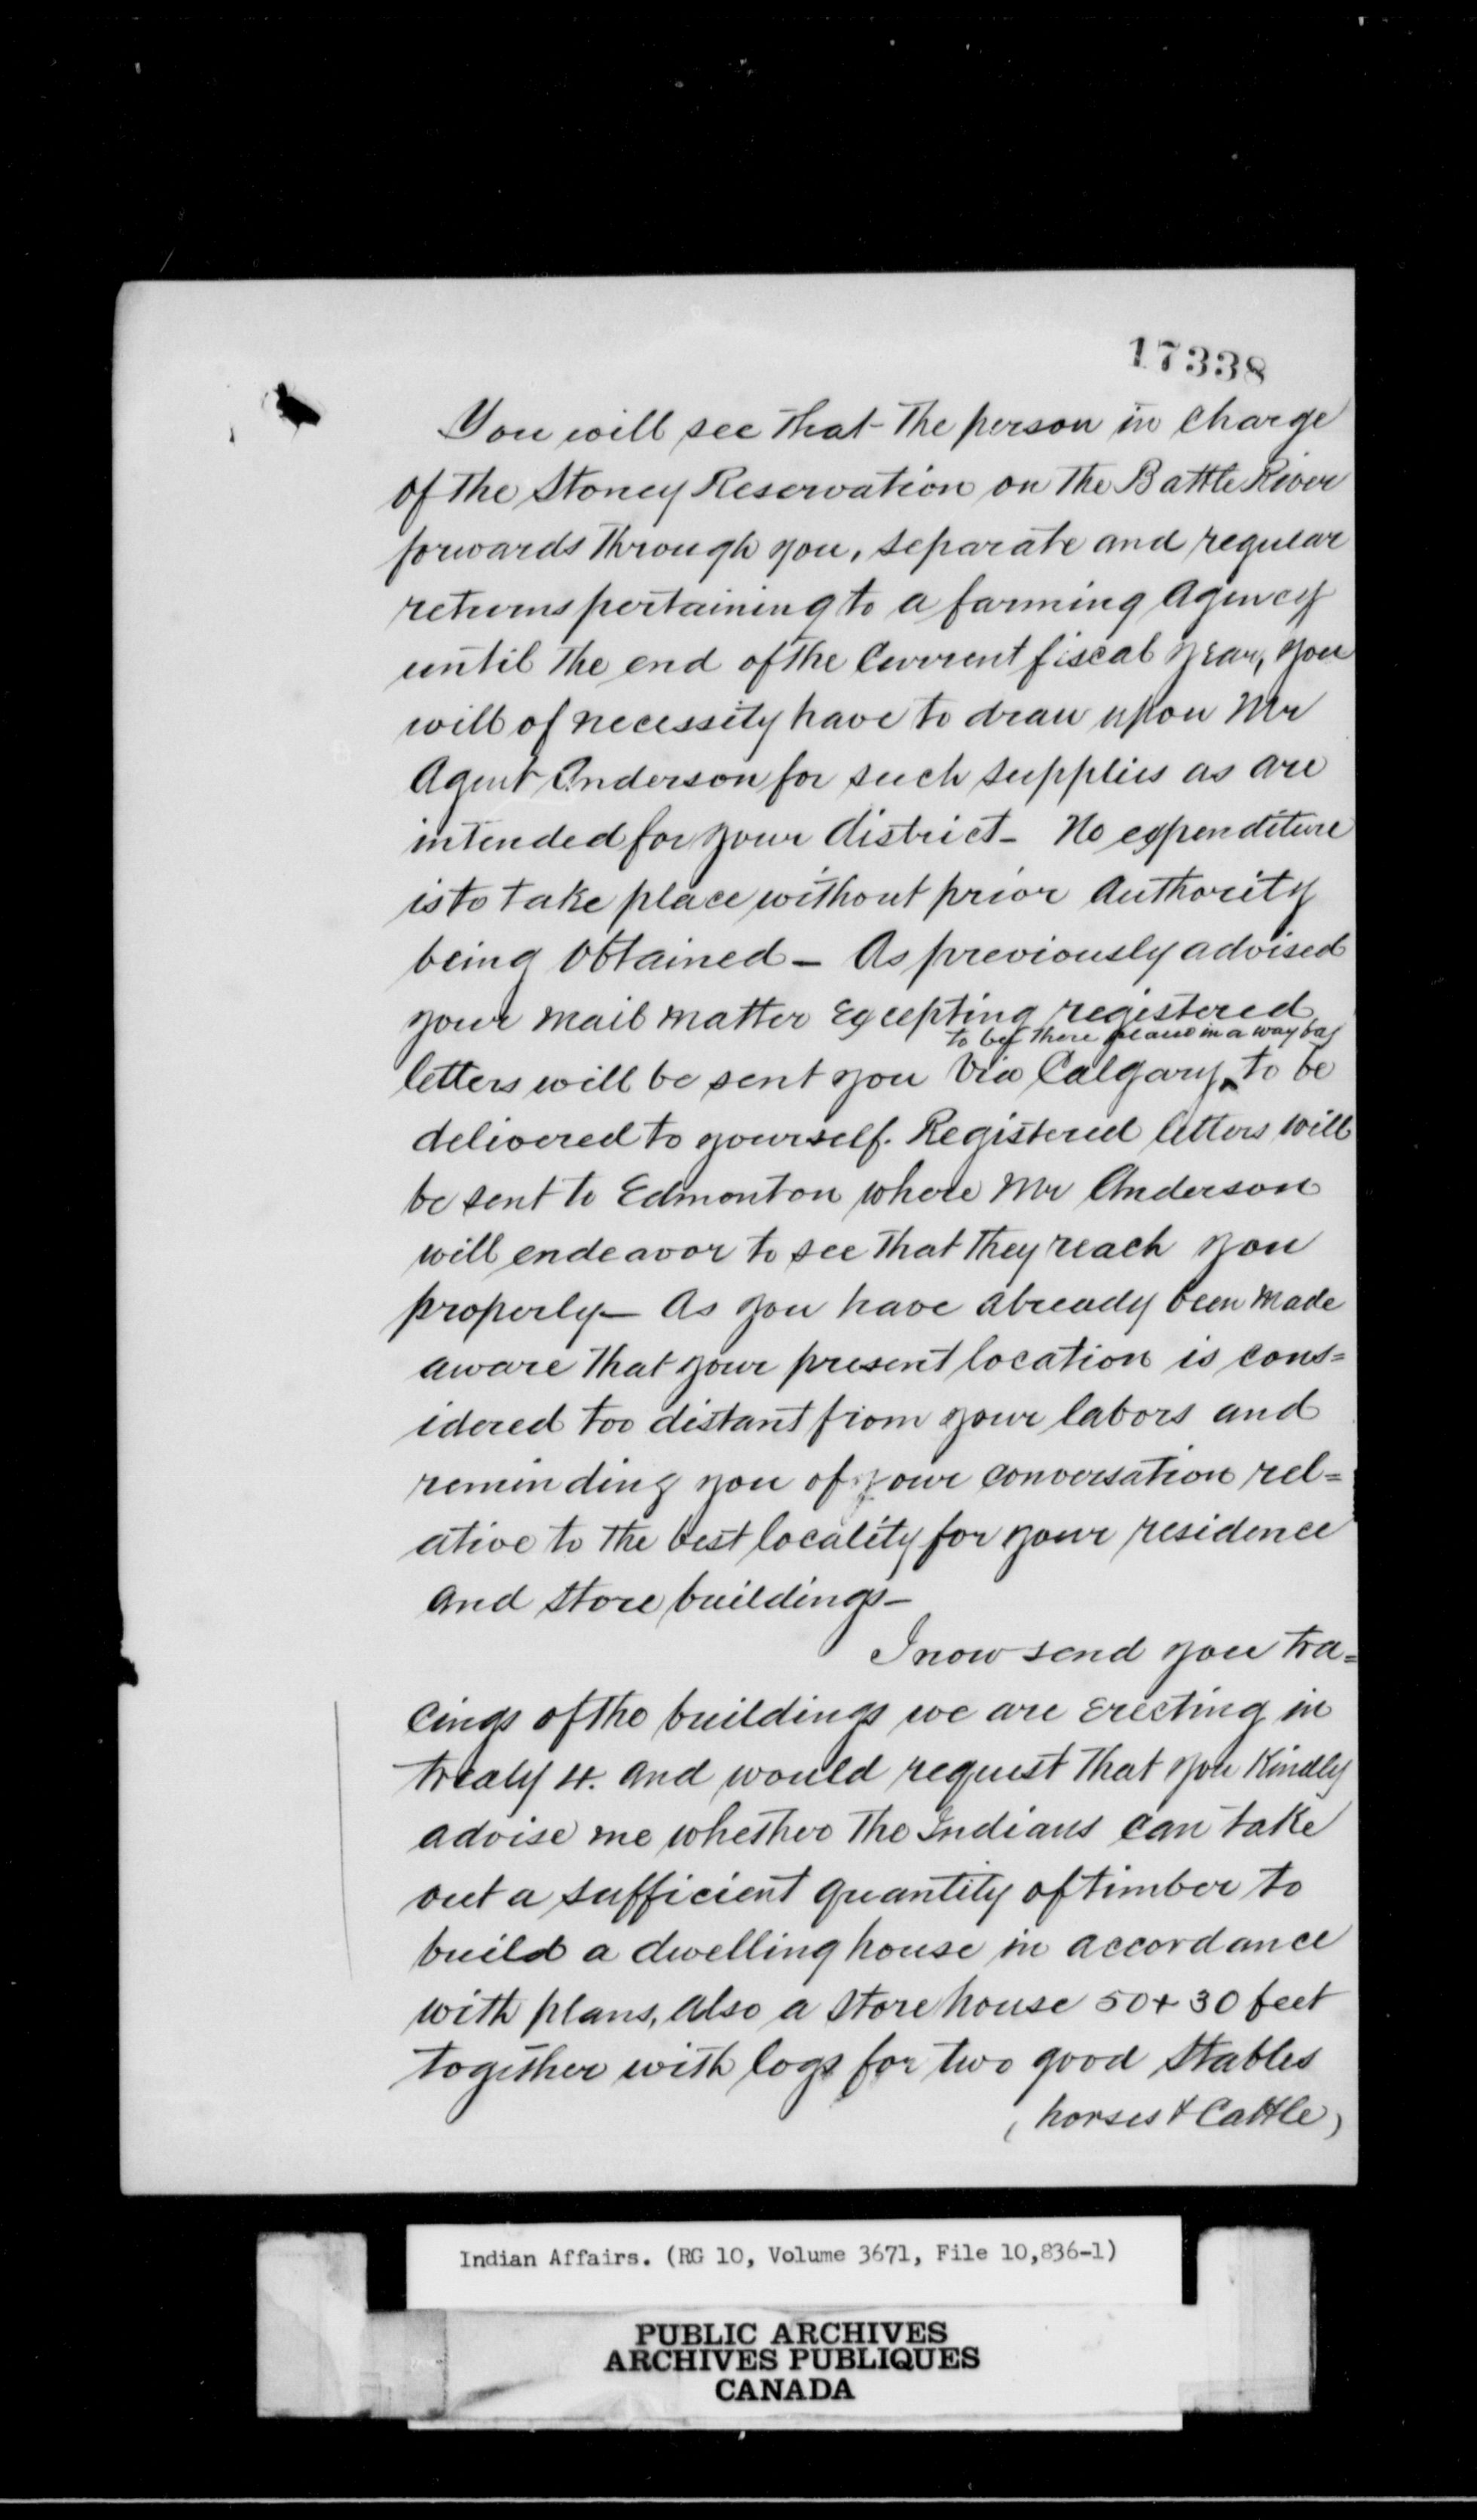 17338
You will see that the person in charge
of the Stoney Reservation on the Battle River
forwards through you, separate and regular
returns pertaining to a farming Agency
until the end of the Current fiscal year, you
will of necessity have to draw upon Mr
Agent Anderson for such supplies as are
intended for your district - No expenditure
is to take place without prior Authority
being obtained - As previously advised
your mail matter excepting registered
to be there placed in a way bag
letters will be sent you via Calgary to be
delivered to yourself. Registered letters will
be sent to Edmonton where Mr Anderson
will endeavor to see that they reach you
properly - As you have already been made
aware that your present location is cons=
idered too distant from your labors and
reminding you of your conversation rel=
ative to the best locality for your residence
and store buildings -
I now send you tra=
cings of the buildings we are erecting in
treaty 4. and would request that you Kindly
advise me whether the Indians can take
out a sufficient quantity of timber to
build a dwelling house in accordance
with plans, also a store house 50 + 30 feet
together with logs for two good Stables
(horses & Cattle)
Indian Affairs. (RG 10, Volume 3671, File 10,836-1)
PUBLIC ARCHIVES
ARCHIVES PUBLIQUES
CANADA